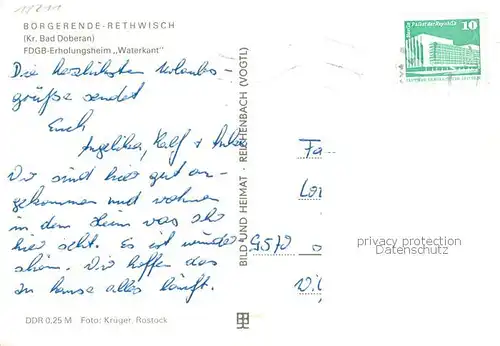 11211
BÖRGERENDE-RETHWISCH
(Kr. Bad Doberan)
FDGB-Erholungsheim „Waterkant"
Die herzlichsten Urlaubs-
grüße sendet
Euch
Angelika, Ralf +
Wir sind hier gut an-
gekommen und wohnen
in dem Heim was ihr
hier seht. Es ist wunder
schön. Wir hoffen das
zu hause alles läuft.
DDR 0,25 M Foto: Krüger, Rostock
BILD UND HEIMAT · REICHENBACH (VOGTL)
10
Fa
9570
privacy protection
Datenschutz